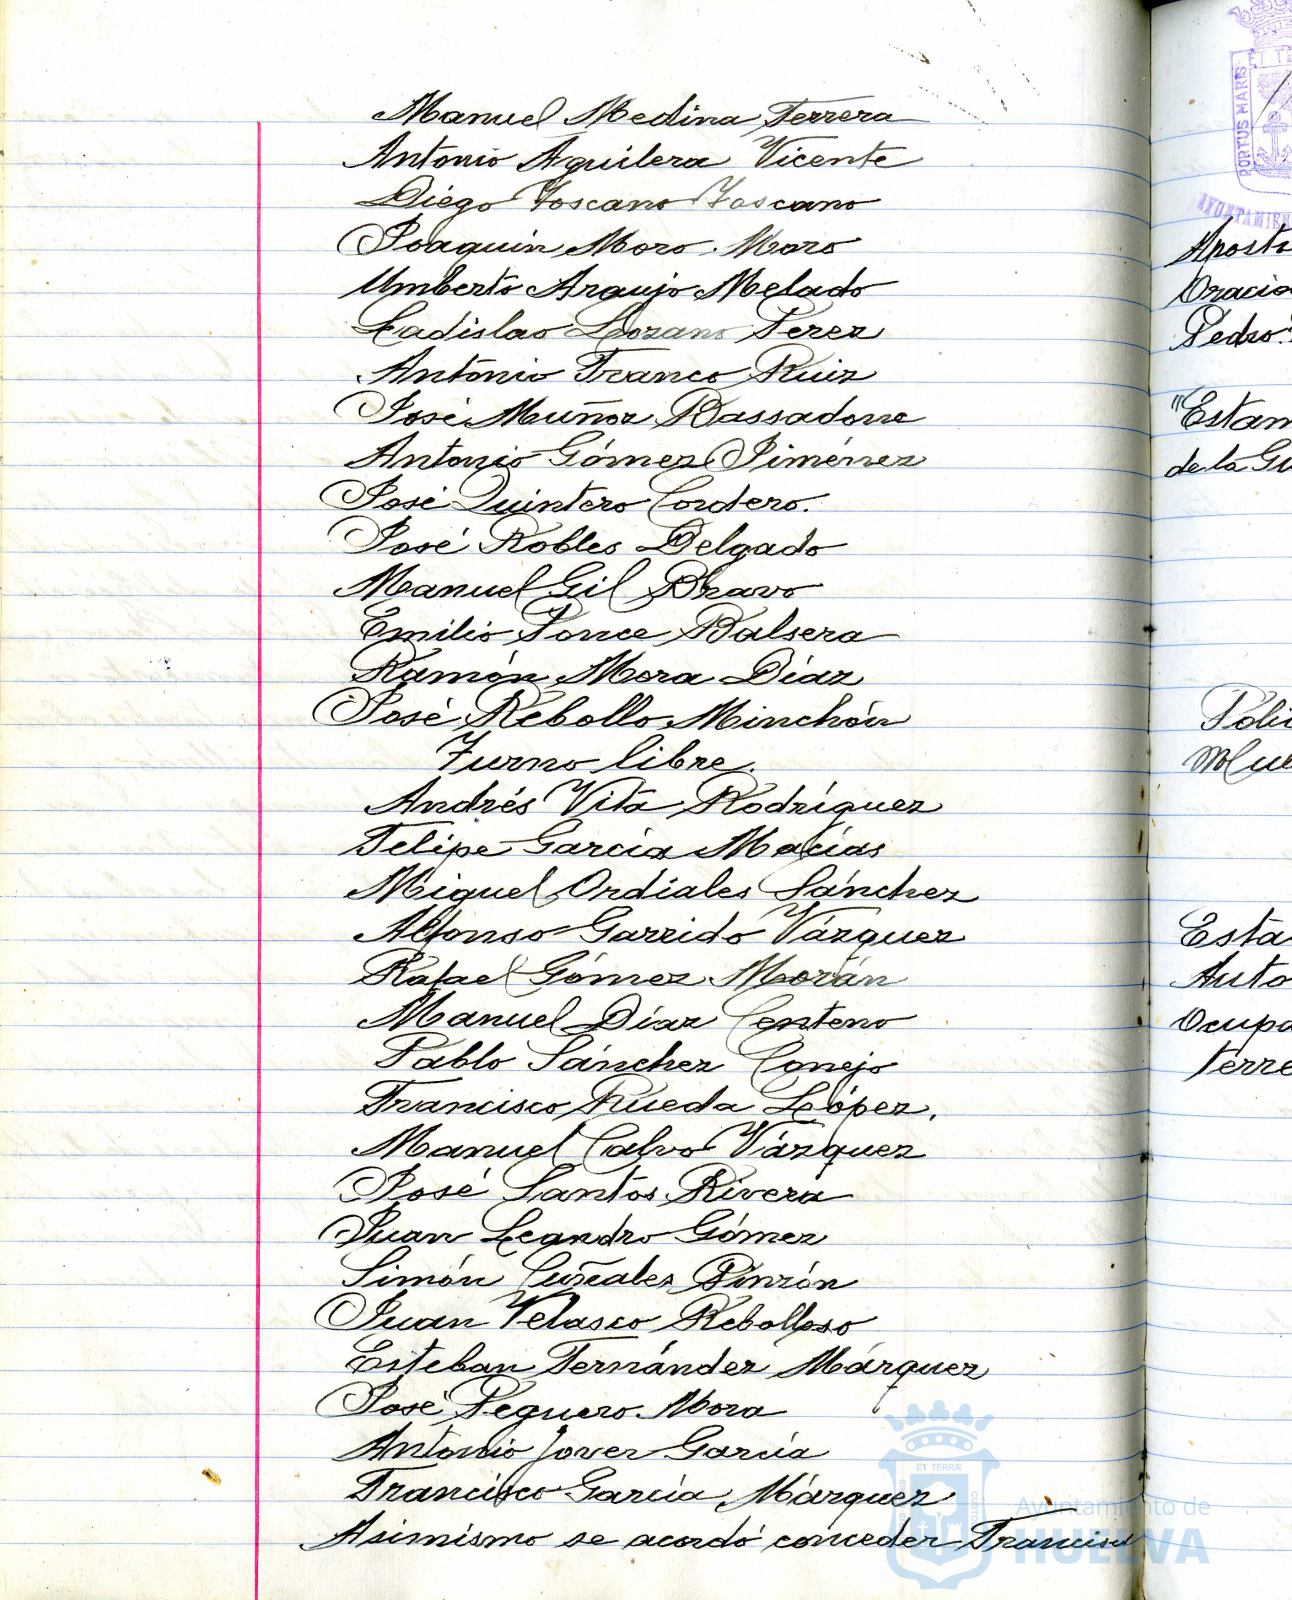 Manuel Medina Ferrera
Antonio Aguilera Vicente
Diego Toscano Toscano
Joaquin Moro Moro
Umberto Araujo Melado
Ladislao Lozano Perez
Antonio Franco Ruiz
José Muñoz Bassadone
Antonio Gómez Jiménez
José Quintero Cordero.
José Robles Delgado
Manuel Gil Bravo
Emilio Ponce Balsera
Ramón Mora Díaz
José Rebollo Minchón
Turno libre.
Andrés Vita Rodríguez
Felipe García Macías
Miguel Ordiales Sánchez
Alfonso Garrido Vázquez
Rafael Gómez Morán
Manuel Díaz Centeno
Pablo Sánchez Conejo
Francisco Rueda López.
Manuel Calvo Vázquez
José Santos Rivera
Juan Leandro Gómez
Simón Pinzón
Juan Velasco Rebolloso
Esteban Fernández Márquez
José Peguero Mora
Antonio Jover García
Francisco García Márquez
Asimismo se acordó conceder
PORTUS MARIS
ET TE
AYUNTAMIEN
Aposti
Oracio
Pedro
"Estam
de la Gu
Polic
Mue
Esta
Auto
Ocupa
Terre
ET TERRÆ
Ayuntamiento de
HUELVA